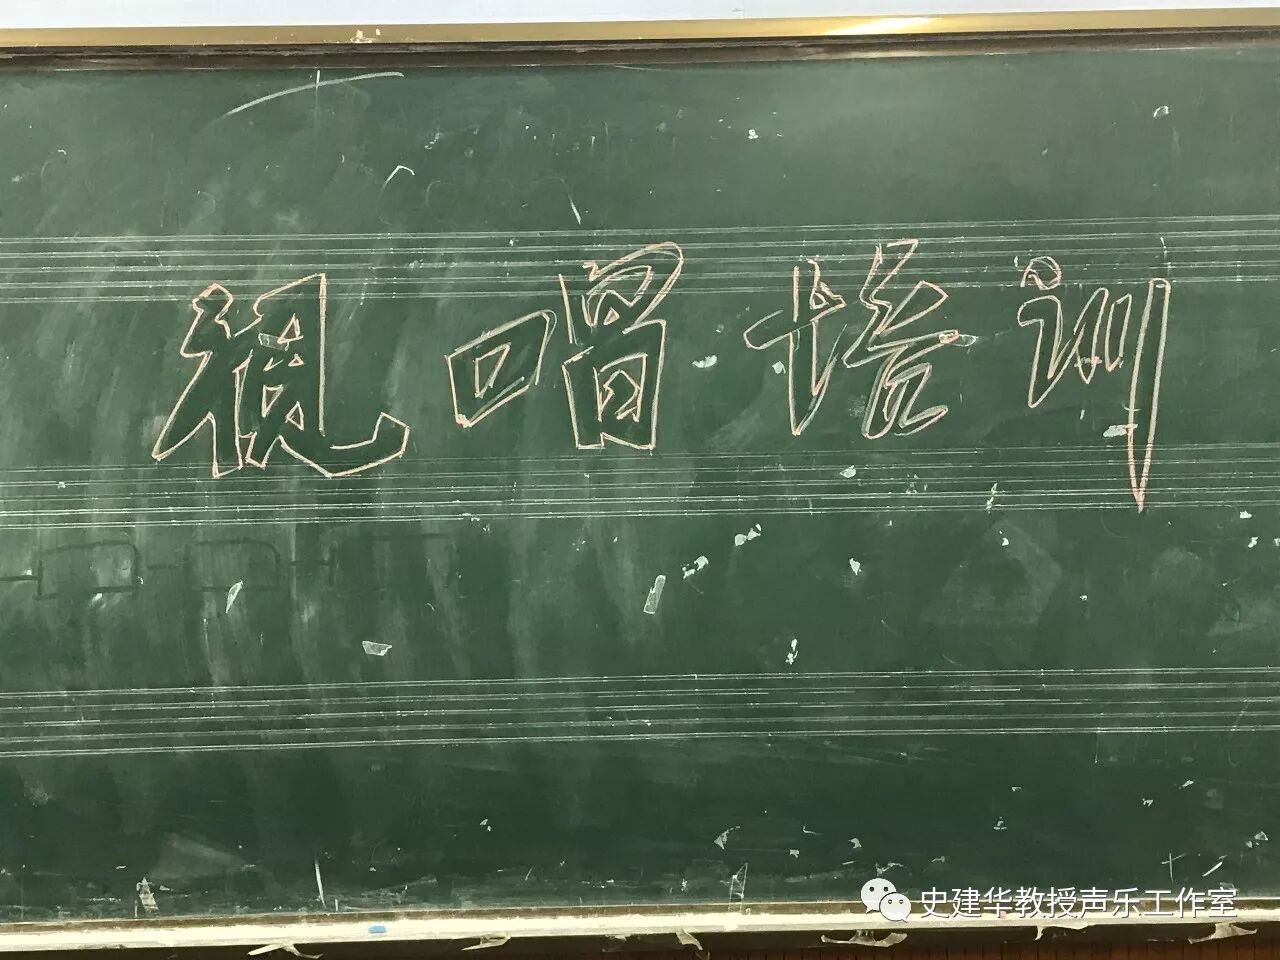 视唱培训
史建华教授声乐工作室